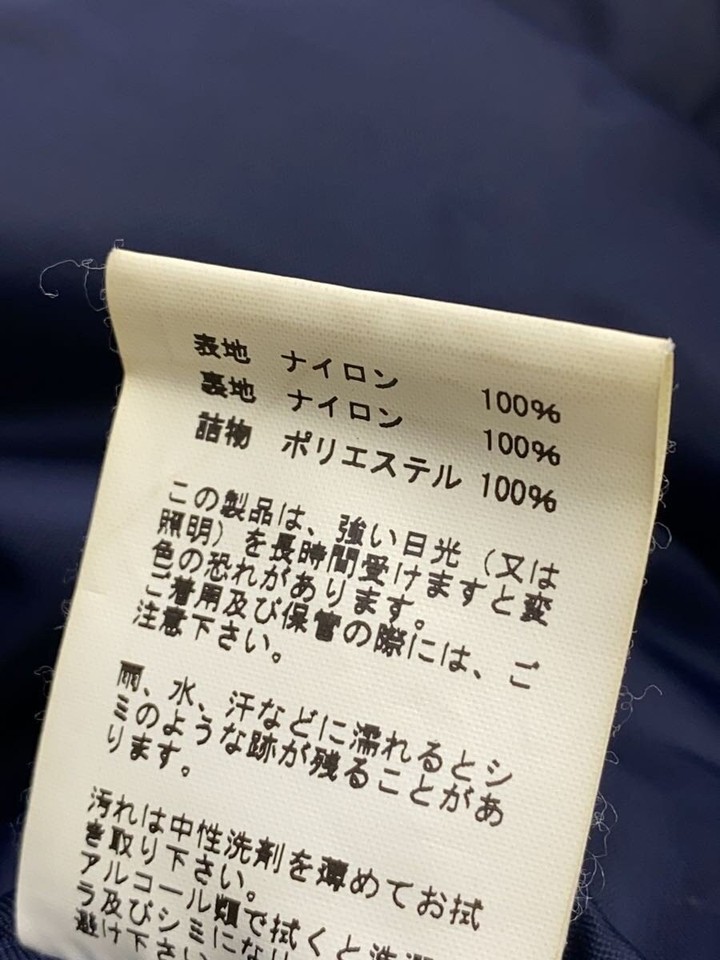 表地 ナイロン 100%
裏地 ナイロン 100%
詰物 ポリエステル 100%
この製品は、強い日光（又は
照明）を長時間受けますと変
色の恐れがあります。
ご着用及び保管の際には、ご
注意下さい。
雨、水、汗などに濡れるとシ
ミのような跡が残ることがあ
ります。
汚れは中性洗剤を薄めてお拭
き取り下さい。
アルコール類で拭くと洗濯
ラ及びシミになり
避け下さい